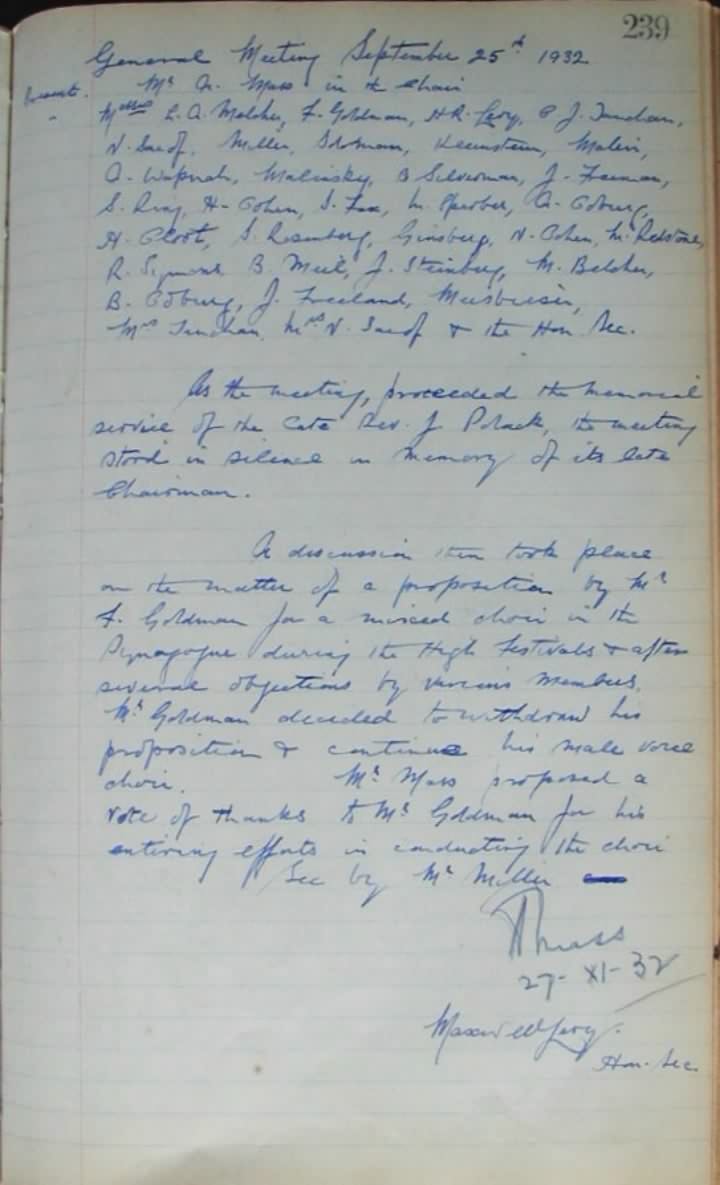 239
General Meeting September 25th 1932
Present. Mr N. Mass in the Chair
Messrs L. A. Melcher, F. Goldman, H R. Levy, P J. Tuncham,
N. Miller, Solomon, Malin,
A. Wapnah, Malinsky, B Silverman, J. Freeman,
S. Ring, H. Cohen, S. Fox, M. Sperber, A. Coburg,
H. Cloot, S. Rosenberg, Ginsberg, N. Cohen, Mr Redstone,
R. Symons B. J. Steinberg, M. Belcher,
B. Coburg, J. Freeland,
Mrs Mrs N. & the Hon Sec.
As the meeting, proceeded the memorial
service of the late Rev. J Polack, the meeting
stood in silence in memory of its late
Chairman.
A discussion then took place
on the matter of a proposition by Mr
F. Goldman for a mixed choir in the
Synagogue during the High Festivals & after
several objections by various members,
Mr Goldman decided to withdraw his
proposition & continue his male voice
choir. Mr Mass proposed a
vote of thanks to Mr Goldman for his
untiring efforts in conducting the choir
Sec by Mr Miller
N Mass
27-XI-32
Maxwell Levy.
Hon. Sec.